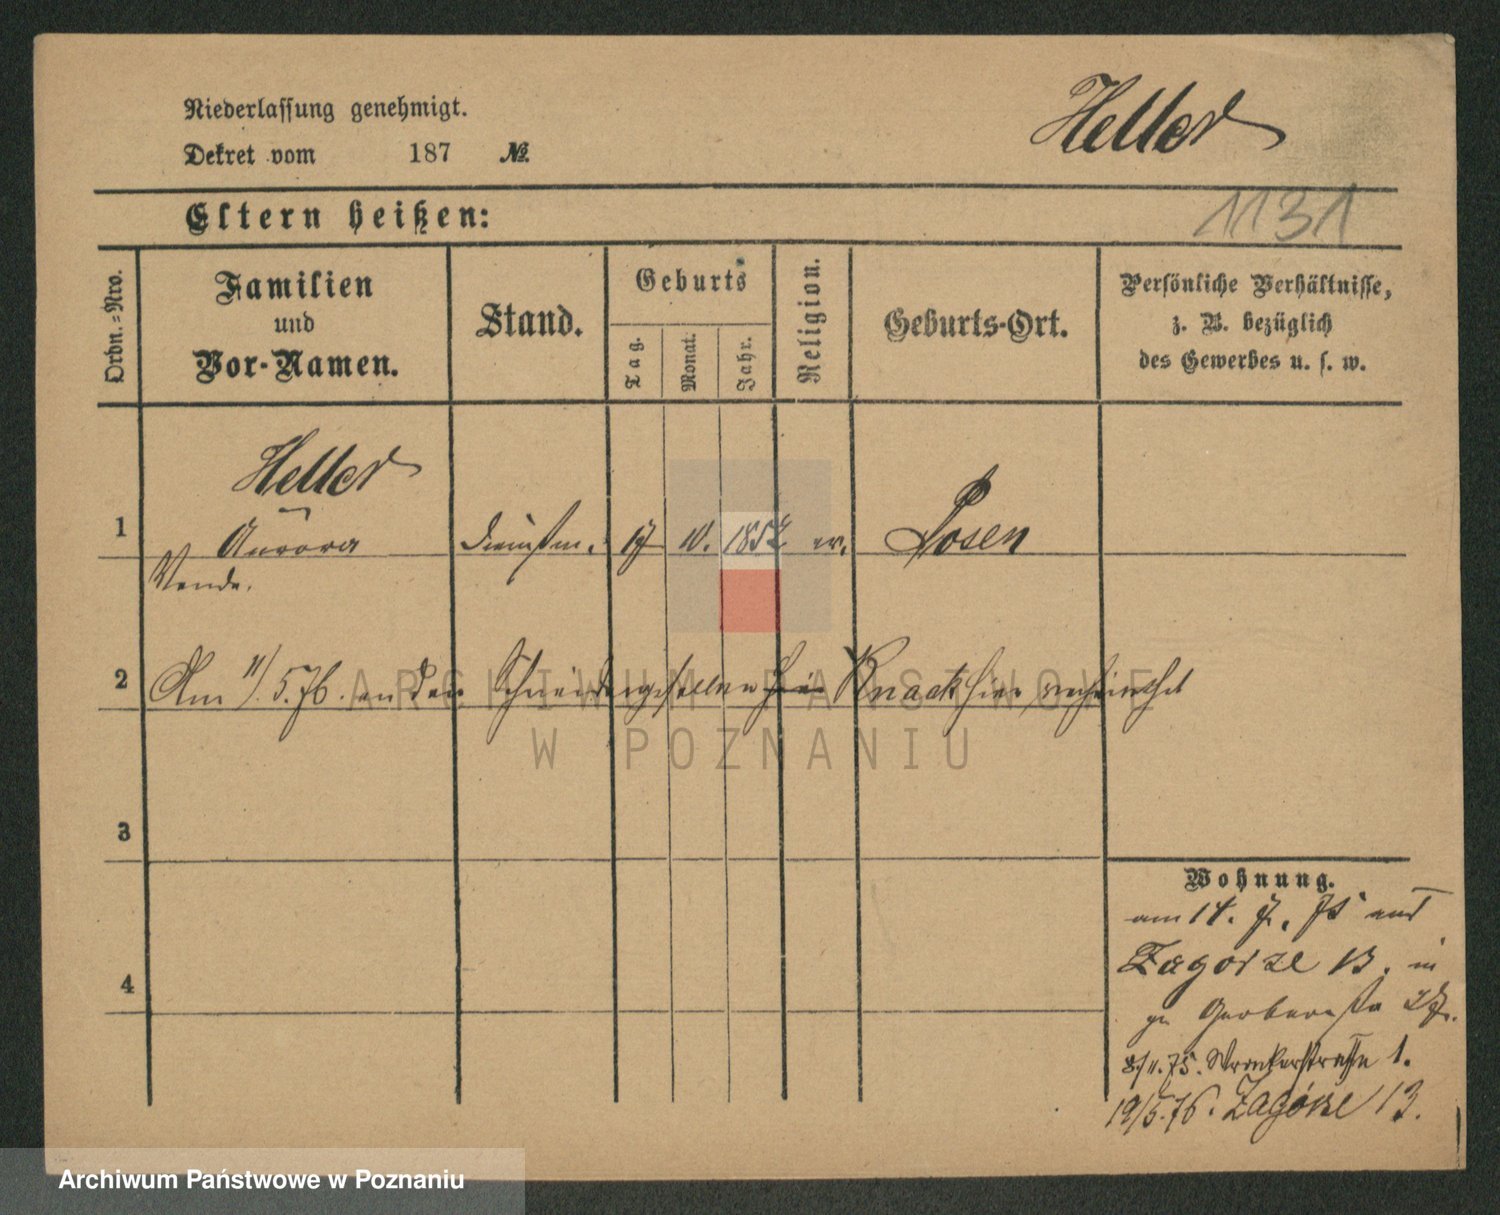 Niederlassung genehmigt.
Dekret vom 187 №.
Heller
1131
Eltern heißen:
Ordn.-Nro.
Familien
und
Vor-Namen.
Stand.
Geburts
Tag.
Monat.
Jahr.
Religion.
Geburts-Ort.
Persönliche Verhältnisse,
z. B. bezüglich
des Gewerbes u. s. w.
Heller
1 Aurora Dienstm. 17 10. 1852 ev. Posen
2 Am 11/5.76. an den Schneidergesellen Knack hier verheirathet
3
Wohnung.
am 14. 7. 75 aus
Zagorze 13. in
4
8/11.75. Wronkerstrasse 1.
19/5.76. Zagórze 13.
ARCHIWUM PAŃSTWOWE
W POZNANIU
Archiwum Państwowe w Poznaniu